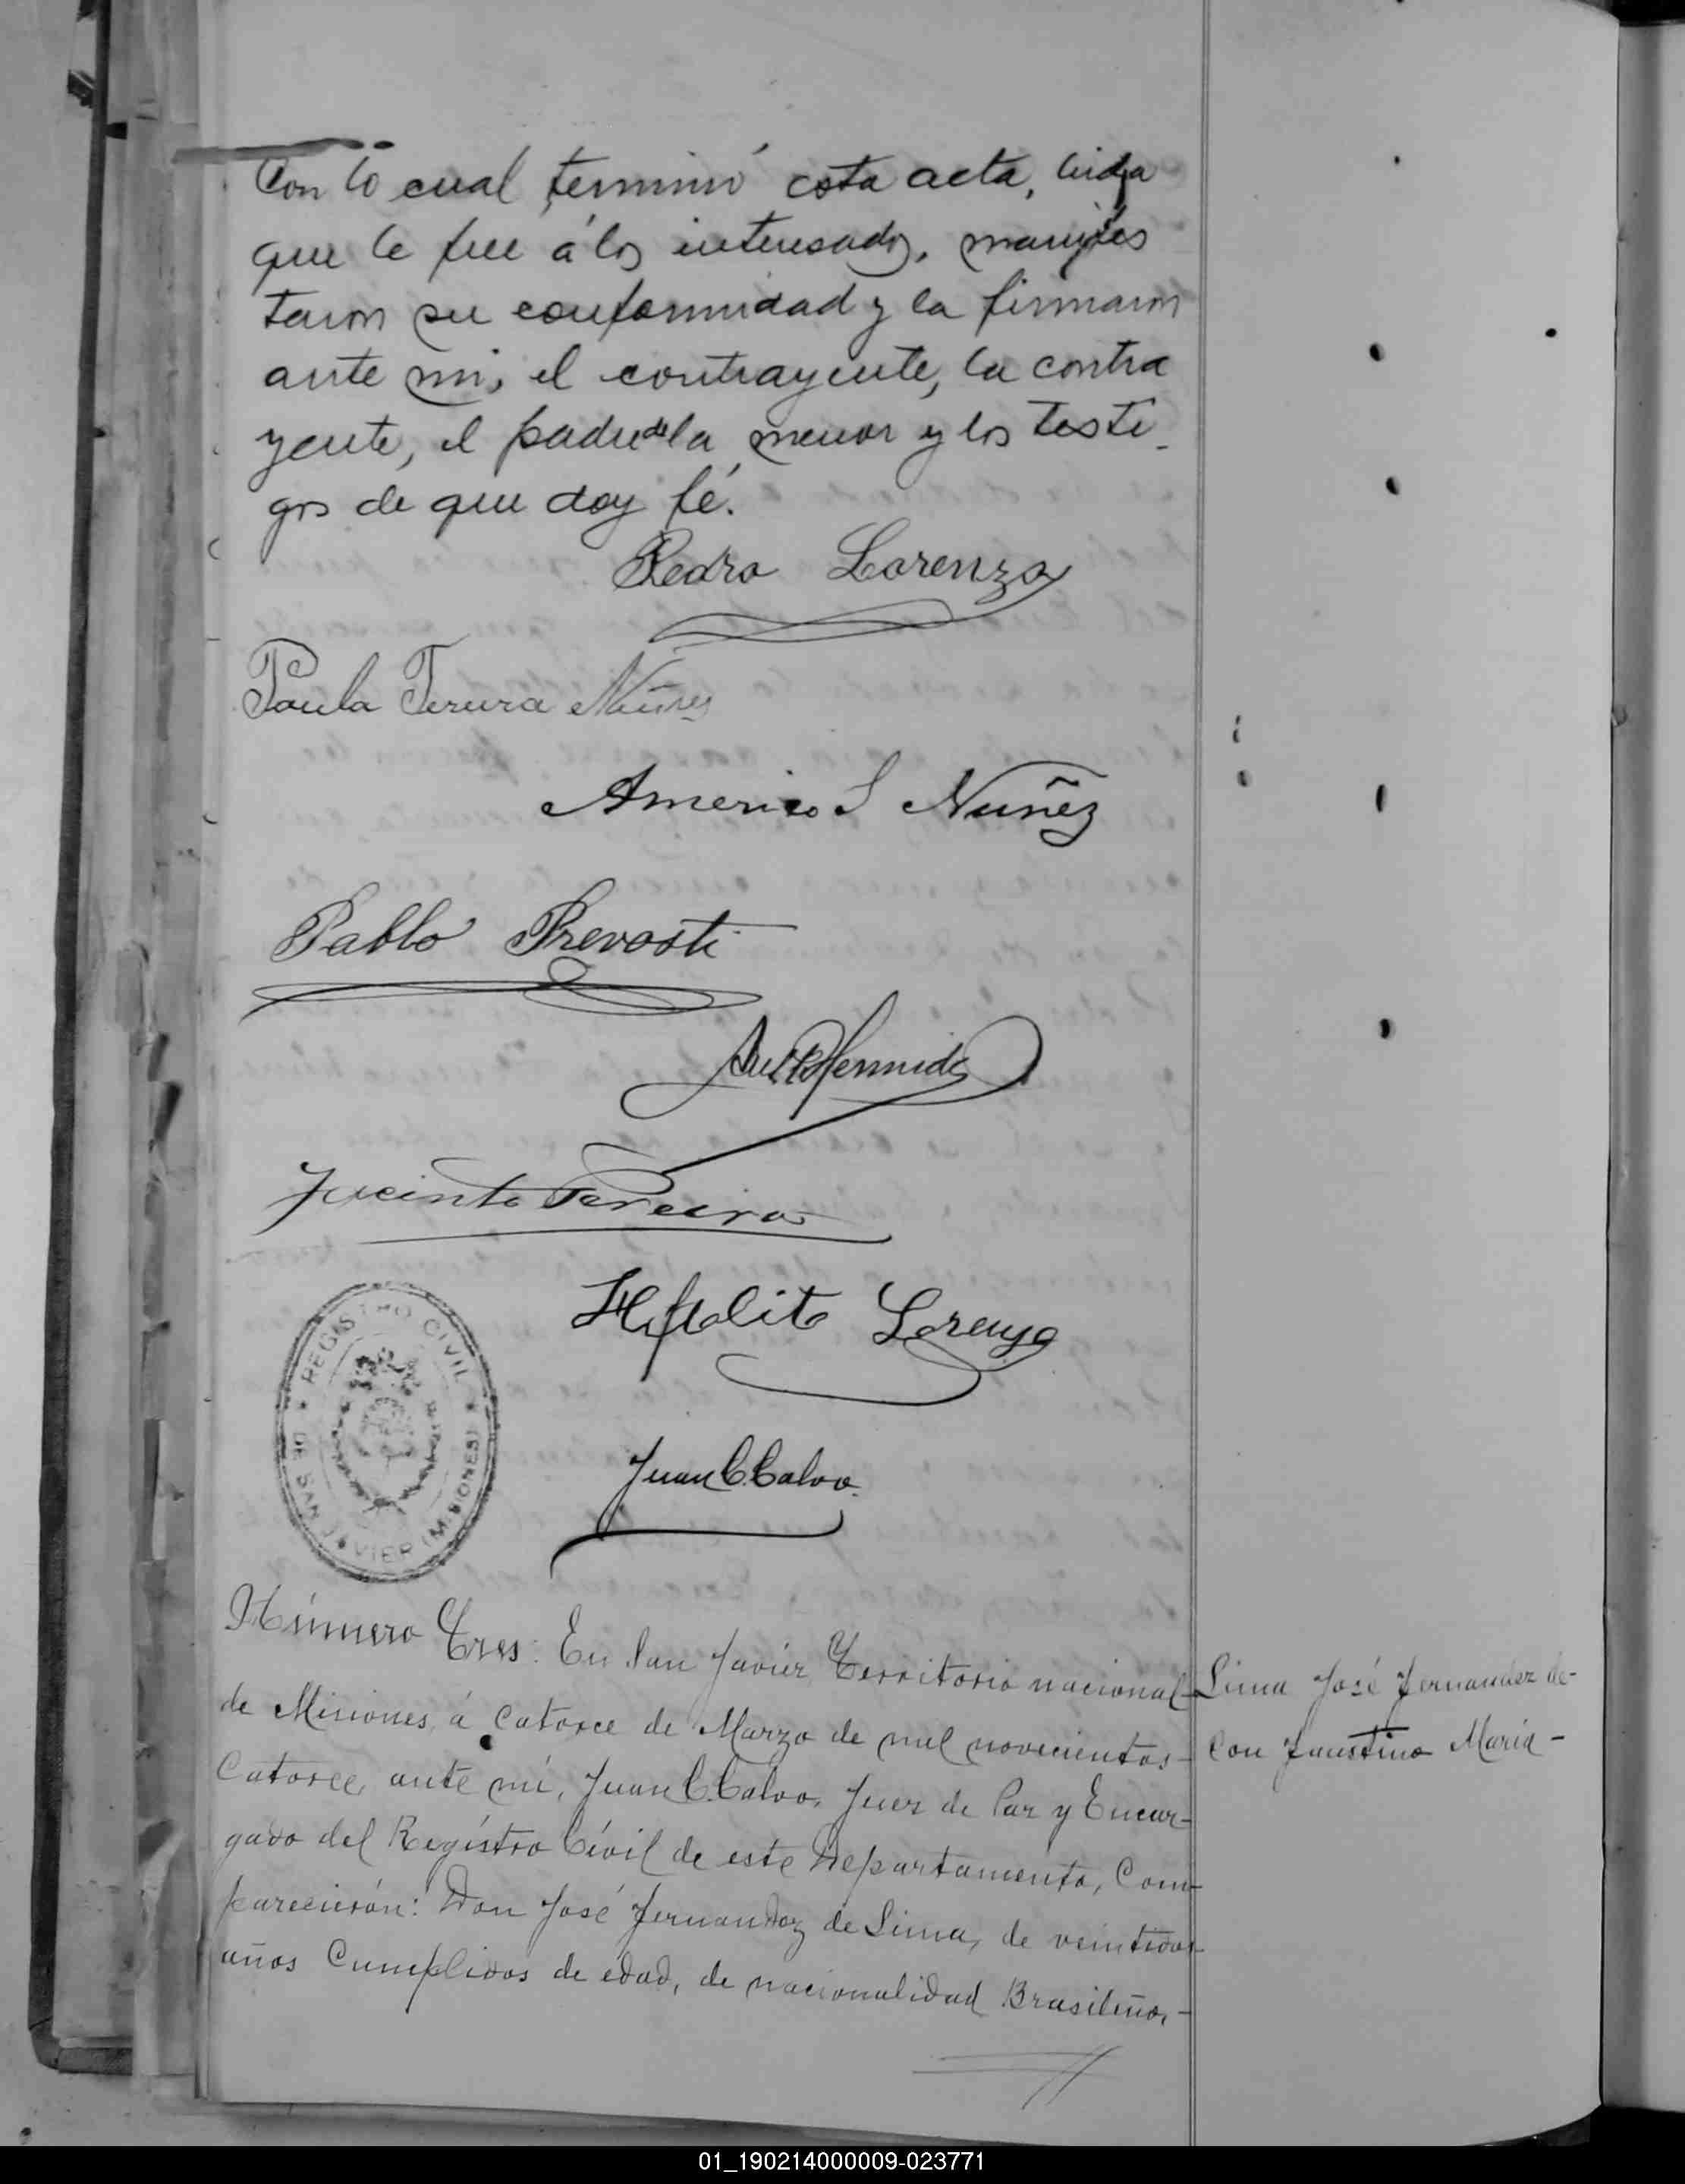 Con lo cual terminó esta acta, leida
que le fue á los interesados, manifes
taron su conformidad y la firmaron
ante mi, el contrayente, la contra
yente, el padre de la menor y los testi-
gos de que doy fé.
Pedro Lorenzo
Paula Terura Nuñes
Americo S Nuñez
Pablo Prevosti
Hermida
Jacinto Pereira
Hipolito Lorenzo
REGISTRO CIVIL
DE SAN JAVIER (MISIONES)
Juan C. Calvo.
Número Tres: En San Javier Territorio nacional-
de Misiones, á Catorce de Marzo de mil novecientos-
Catorce, ante mí, Juan C. Calvo, Juez de Paz y Encar-
gado del Registro Civil de este Departamento, Com-
parecierón: Don José Fernandez de Lima, de veintidos-
años Cumplidos de edad, de nacionalidad Brasileña,-
Lima José Fernandez de-
Con Faustina María-
01_190214000009-023771